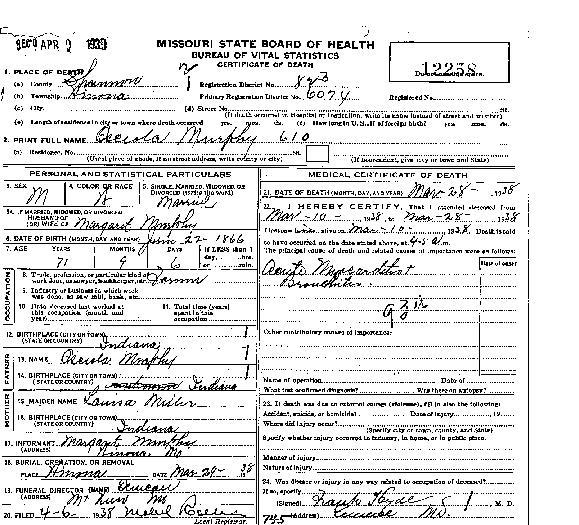 REC'D APR 9 1939
MISSOURI STATE BOARD OF HEALTH
BUREAU OF VITAL STATISTICS
CERTIFICATE OF DEATH
12238
1. PLACE OF DEATH
(a) County Shannon Registration District No.
(b) Township Primary Registration District No. 6074 Registered No.
(c) City (d) Street No. St.
(If death occurred in Hospital or Institution, write its name instead of street and number)
(e) Length of residence in city or town where death occurred (f) How long in U.S. if of foreign birth?
2. PRINT FULL NAME Osciola Murphy 610
(a) Residence, No. St.
(Usual place of abode, if no street address, write county or city) (If nonresident, give city or town and State)
PERSONAL AND STATISTICAL PARTICULARS
3. SEX M
4. COLOR OR RACE W
5. SINGLE, MARRIED, WIDOWED, OR DIVORCED (write the word) Married
5A. IF MARRIED, WIDOWED, OR DIVORCED
HUSBAND OF
(OR) WIFE OF Margaret Murphy
6. DATE OF BIRTH (MONTH, DAY AND YEAR) June 22 - 1866
7. AGE YEARS MONTHS DAYS If LESS than 1 day, hrs. or min.
71 9 6
OCCUPATION
8. Trade, profession, or particular kind of work done, as sawyer, bookkeeper, etc. Farmer
9. Industry or business in which work was done, as saw mill, bank, etc.
10. Date deceased last worked at this occupation (month and year)
11. Total time (years) spent in this occupation
12. BIRTHPLACE (CITY OR TOWN)
(STATE OR COUNTRY) Indiana
FATHER
13. NAME Osciola Murphy
14. BIRTHPLACE (CITY OR TOWN)
(STATE OR COUNTRY) Indiana
MOTHER
15. MAIDEN NAME Louisa
16. BIRTHPLACE (CITY OR TOWN)
(STATE OR COUNTRY) Indiana
17. INFORMANT Margaret Murphy
(ADDRESS) Mo
18. BURIAL, CREMATION, OR REMOVAL
PLACE DATE Mar 29 - 38
19. FUNERAL DIRECTOR (NAME) Duncan
(ADDRESS) Mt View Mo
20. FILED 4-6- 1938
Local Registrar
MEDICAL CERTIFICATE OF DEATH
21. DATE OF DEATH (MONTH, DAY, AND YEAR) Mar 28 - 1938
22. I HEREBY CERTIFY, That I attended deceased from
Mar - 10 - 1938 to Mar - 28 - 1938
I last saw h alive on Mar - 10 - 1938. Death is said
to have occurred on the date stated above, at
The principal cause of death and related causes of importance were as follows:
Date of onset
Acute
Bronchitis
Other contributory causes of importance:
Name of operation Date of
What test confirmed diagnosis? Was there an autopsy?
23. If death was due to external causes (violence), fill in also the following:
Accident, suicide, or homicide? Date of injury , 19
Where did injury occur?
(Specify city or town, county, and State)
Specify whether injury occurred in industry, in home, or in public place.
Manner of injury
Nature of injury
24. Was disease or injury in any way related to occupation of deceased?
If so, specify
(Signed) Frank Hyde , M. D.
(Address) Eminence Mo.